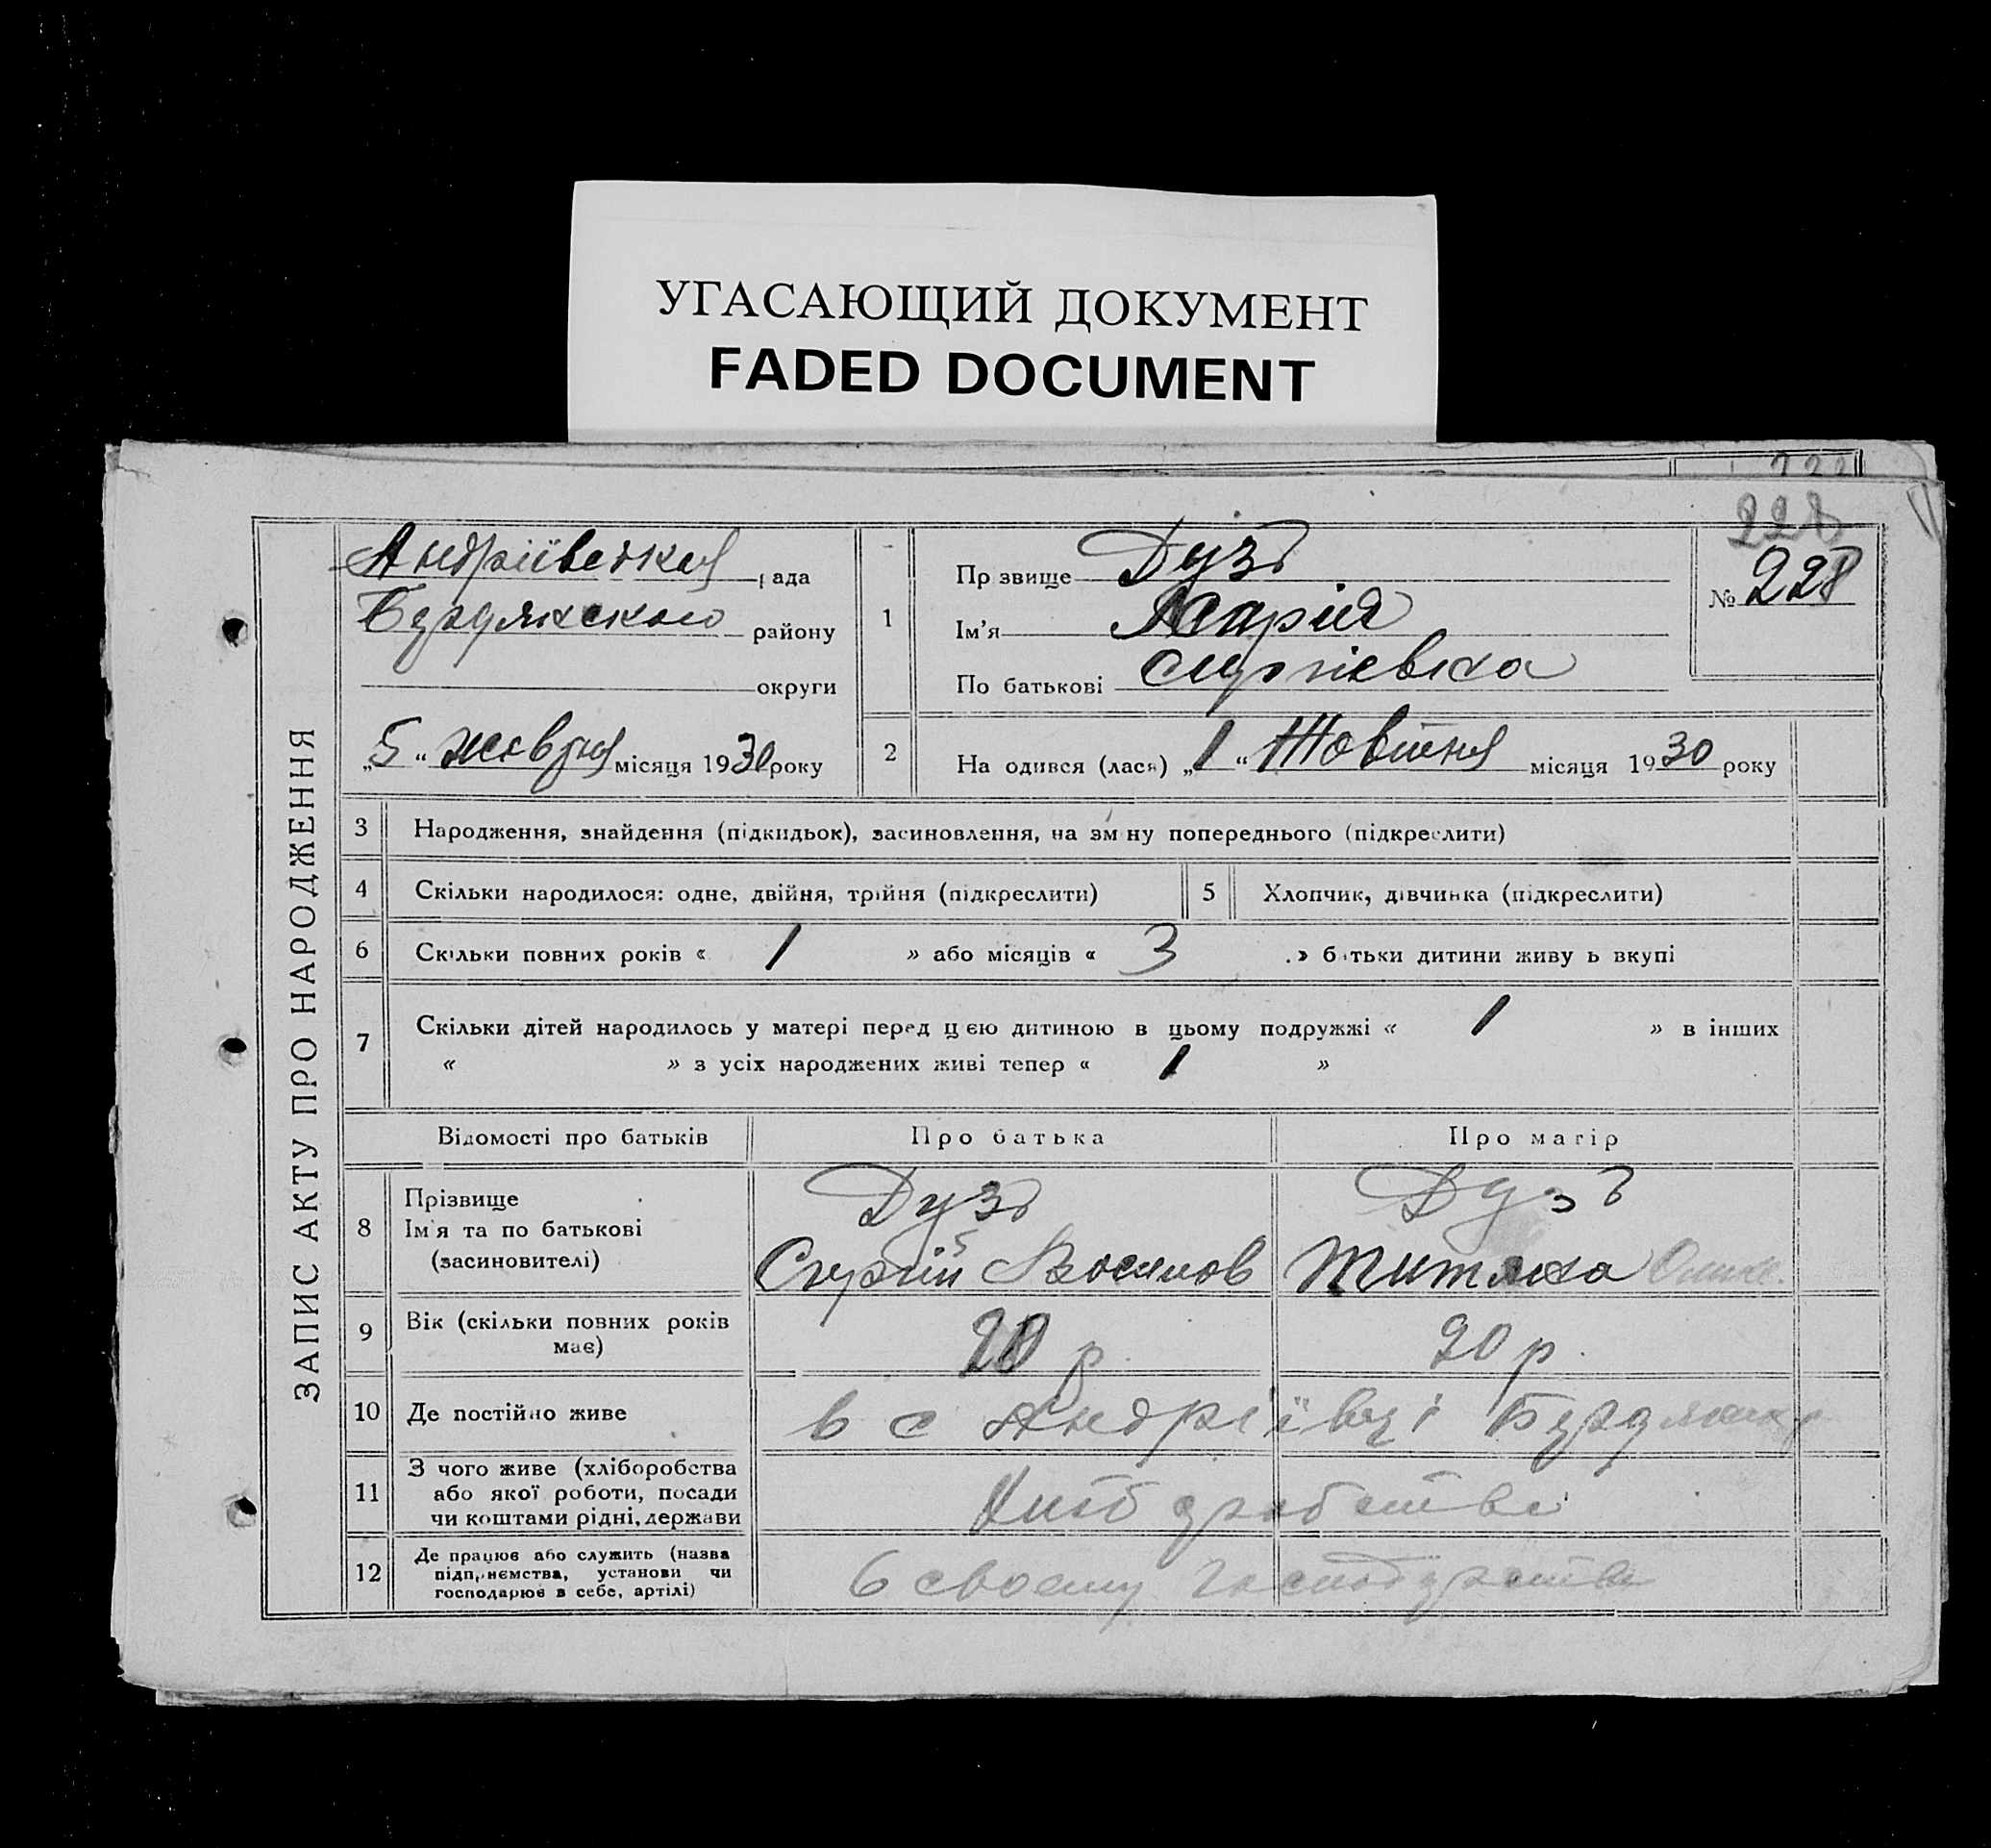 УГАСАЮЩИЙ ДОКУМЕНТ
FADED DOCUMENT
228
ЗАПИС АКТУ ПРО НАРОДЖЕННЯ
Андріївська рада
Бердянського району
округи
„5“ жовтня місяця 1930 року
1
Прізвище Дузь
Ім’я Марія
По батькові Сергіевна
№ 228
2
На одився (лася) „1“ Жовтня місяця 1930 року
3 Народження, знайдення (підкидьок), засиновлення, на зміну попереднього (підкреслити)
4 Скільки народилося: одне, двійня, трійня (підкреслити)
5 Хлопчик, дівчинка (підкреслити)
6 Скільки повних років « 1 » або місяців « 3 » батьки дитини живуть вкупі
7 Скільки дітей народилось у матері перед цією дитиною в цьому подружжі « 1 » в інших
« » з усіх народжених живі тепер « 1 »
Відомості про батьків Про батька Про матір
8 Прізвище
Ім’я та по батькові
(засновителі)
Дузь
Сергій
Дузь
9 Вік (скільки повних років
має)
20 р.
20 р.
10 Де постійно живе
в с Андріївці
11 З чого живе (хліборобства
або якої роботи, посади
чи коштами рідні, держави
12 Де працює або служить (назва
підприємства, установи чи
господарює в себе, артілі)
в своему господарстві